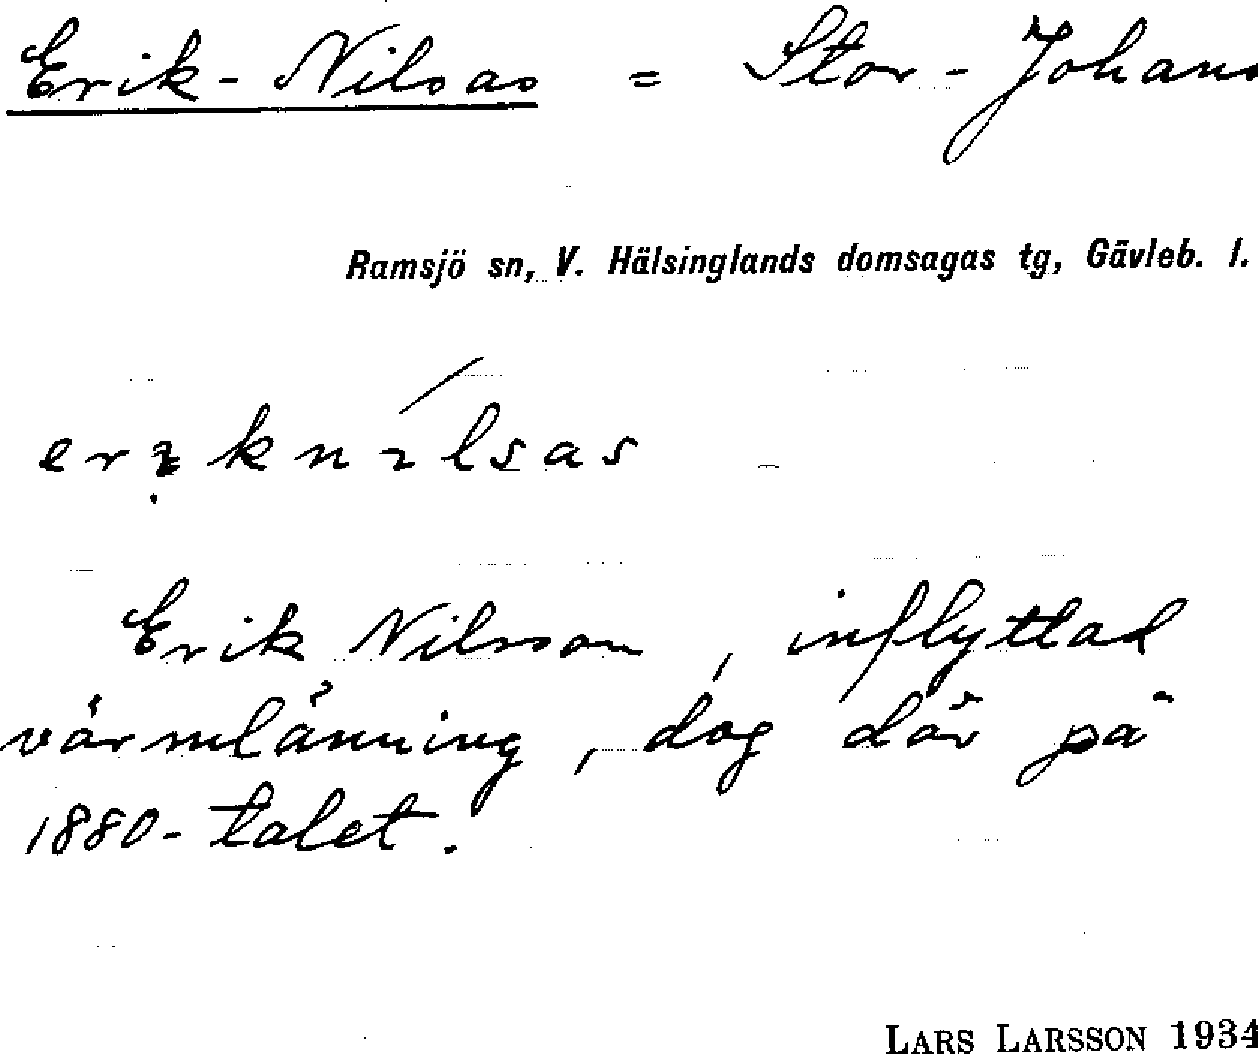 Erik-Nilsas = Stor-Johans
Ramsjö sn, V. Hälsinglands domsagas tg, Gävleb. l.
erıknılsas
Erik Nilsson, inflyttad
värmlänning, dog där på
1880-talet.
LARS LARSSON 1934